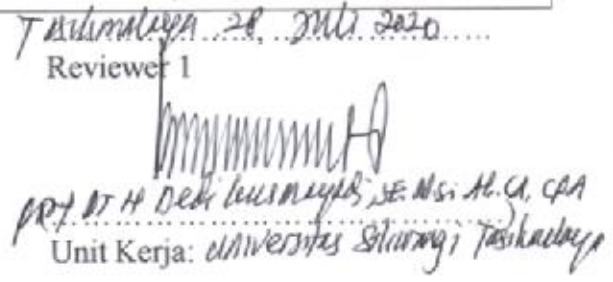 Tasikmalaya 28, Juli 2020
Reviewer 1
H Dedi Kusmayadi, SE. MSi Ak. CA, CPA
Unit Kerja: Universitas Siliwangi Tasikmalaya